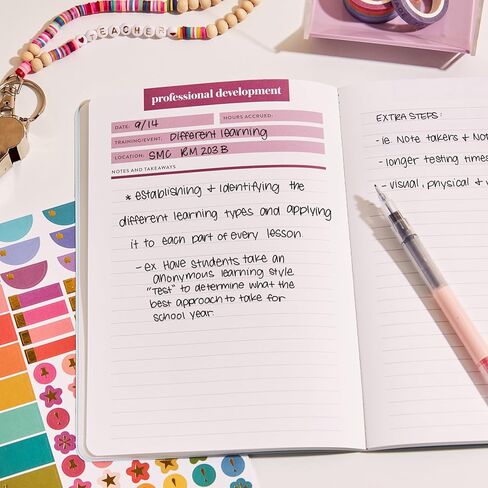 TEACHER
professional development
DATE: 9/14 HOURS ACCRUED:
TRAINING/EVENT: Different learning
LOCATION: SMC RM 203B
NOTES AND TAKEAWAYS
* establishing & identifying the
different learning types and applying
it to each part of every lesson.
- ex Have students take an
anonymous learning style
"test" to determine what the
best approach to take for
school year.
EXTRA STEPS:
- ie. Note takers & No
- longer testing times
- visual, physical &